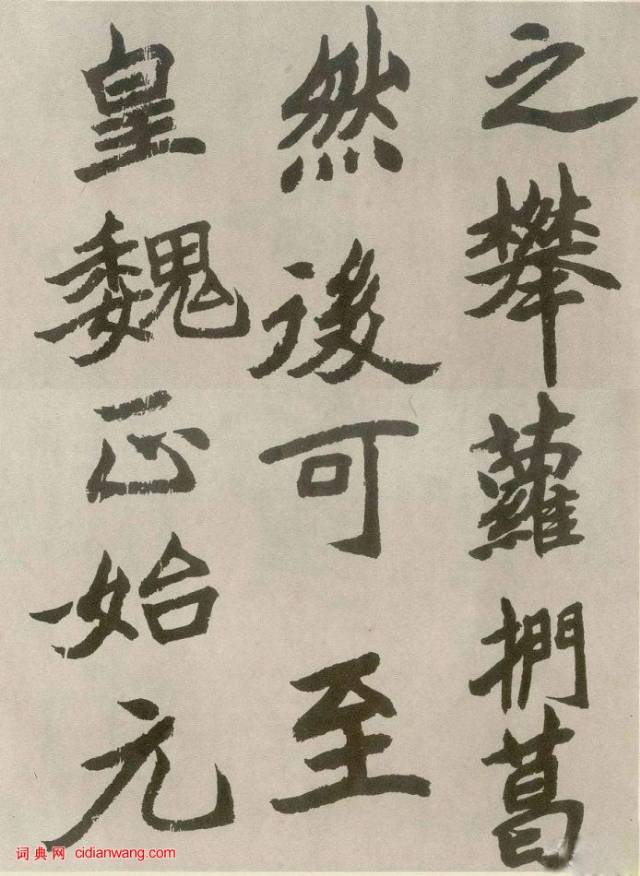 之攀蘿捫葛
然後可至
皇魏正始元
词典网 cidianwang.com